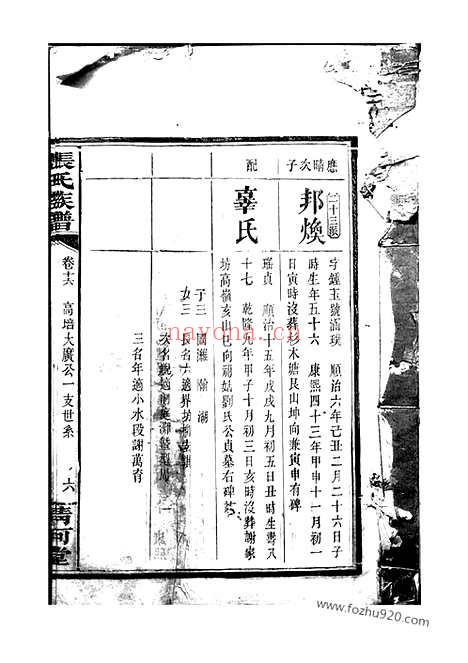 應晴次子
邦煥
二十三派
字鍾玉號滿璞 順治六年己丑二月二十六日子
時生年五十六 康熙四十三年甲申十一月初一
日寅時沒葬杉木塘艮山坤向兼寅申有碑
配
辜氏
瑤貞 順治十五年戊戌九月初五日丑時生壽八
十七 乾隆九年甲子十月初三日亥時沒葬謝家
坊高嶺亥山向祔姑劉氏公貞墓右碑
子三 國瀚 湖
女三 長名六適界坊
次名
三名年適小水段謝萬育
張氏族譜
卷十六 高增大廣公一支世系
六
清河堂
nayona.cn
www.fozhu920.com